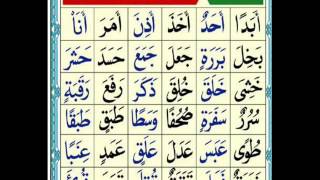 أَبَدًا أَحَدٌ أَخَذَ أَذِنَ أَمَرَ أَنَا
بَخِلَ بَرَرَةٍ جَعَلَ جَمَعَ حَسَدَ حَشَرَ
خَشِىَ خَلَقَ خُلِقَ ذَكَرَ رَفَعَ رَقَبَةٍ
سُرُرٌ سَفَرَةٍ صُحُفًا وَسَطًا طَبَقٍ طَبَقًا
طُوًى عَبَسَ عَدَلَ عَلَقٍ عَمَدٍ عِنَبًا